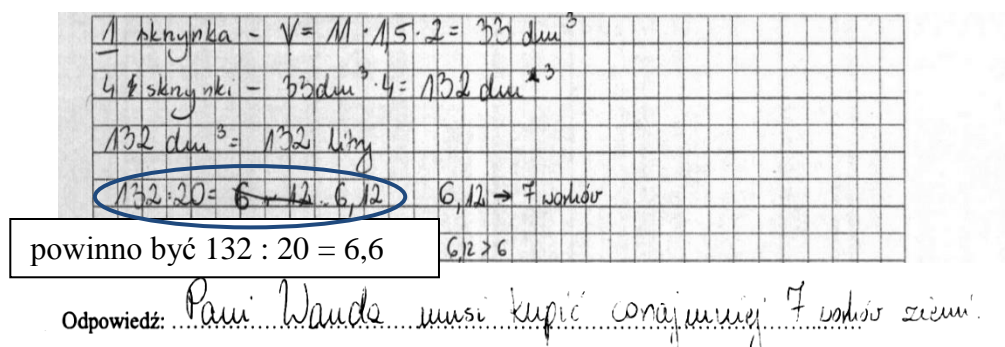 1 skrzynka - V = 11 · 1,5 · 2 = 33 dm³
4 skrzynki - 33dm³ · 4 = 132 dm³
132 dm³ = 132 litry
132:20 = 6 . 12 .. 6,12 6,12 → 7 worków
powinno być 132 : 20 = 6,6
6,12 > 6
Odpowiedź: Pani Wanda musi kupić conajmniej 7 worków ziemi.